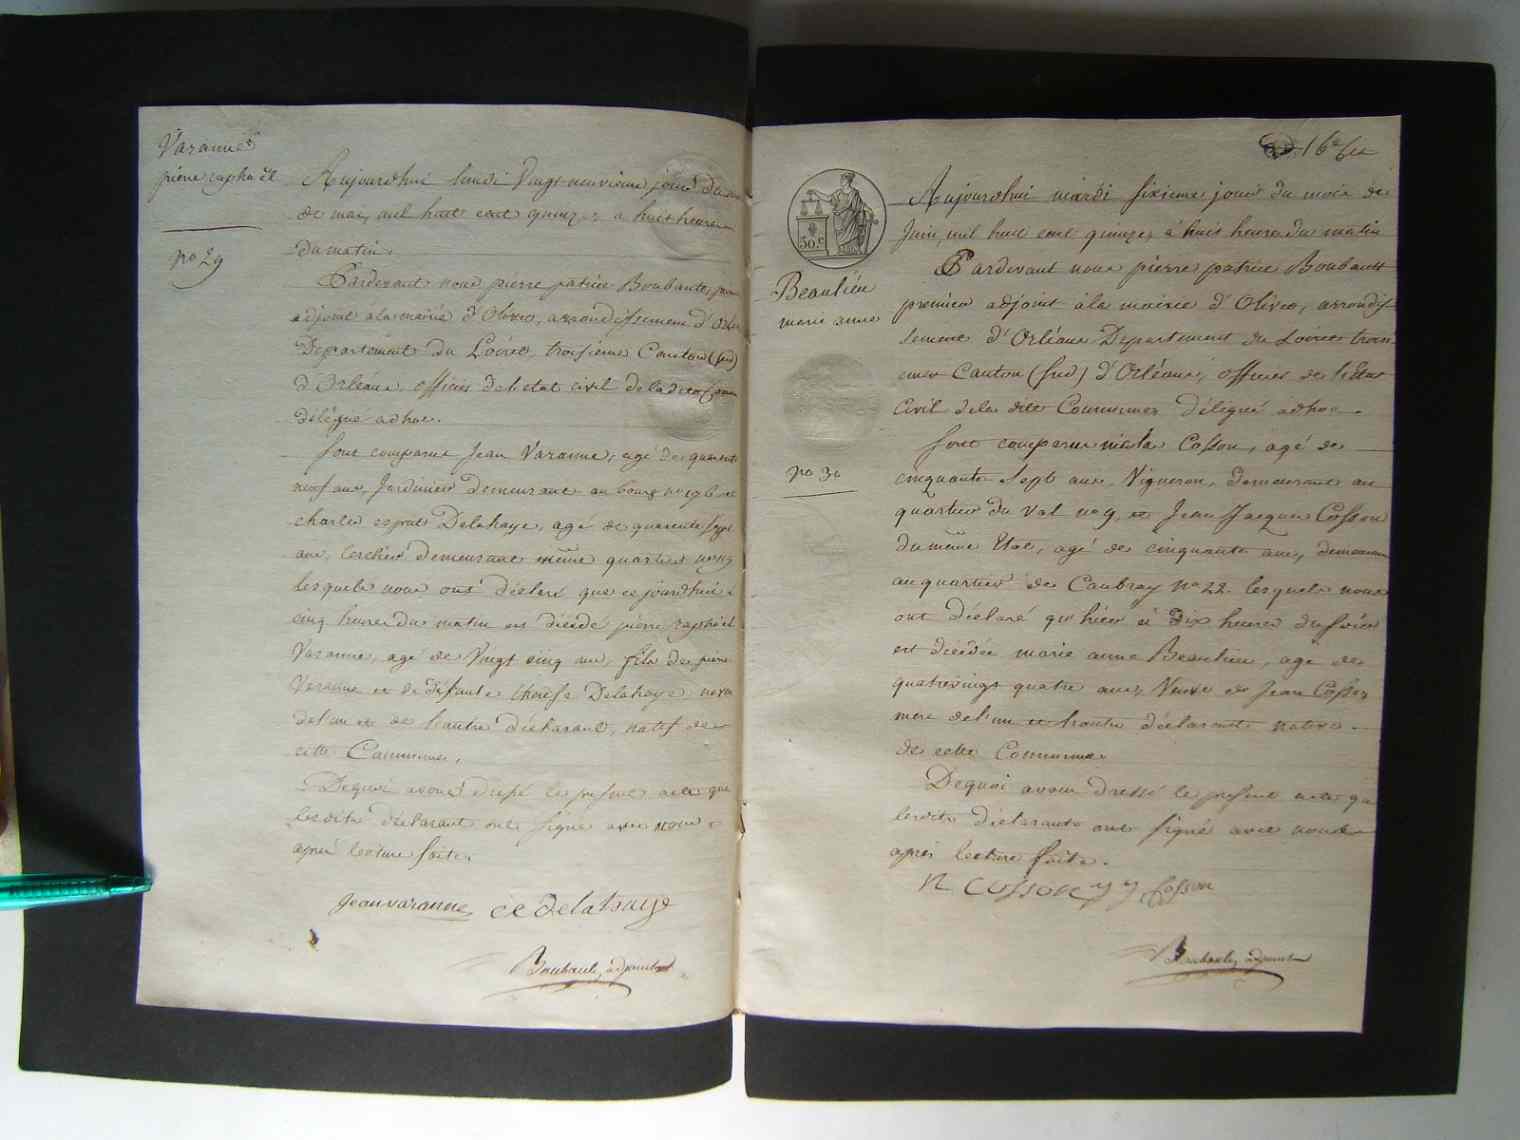 Varanne
pierre raphaël
n° 29
Aujourdhui lundi Vingt neuvieme jour du mois
de mai, mil huit cent quinze, à huit heures
du matin.
Pardevant nous pierre patrice Boubault, premier
adjoint à la mairie d'Olivet, arrondissement d'Orléans
Departement du Loiret, troisieme Canton (sud)
d'Orléans, officier de l'etat civil de la dite Commune
délégué adhoc.
sont comparus Jean Varanne, agé de quarante
neuf ans, Jardinier demeurant au bourg n° 196 et
charles esprit Delahaye, agé de quarante sept
ans, cerclier demeurant même quartier n° 115
lesquels nous ont déclaré que ce jourdhui à
cinq heures du matin est décédé pierre raphaël
Varanne, agé de Vingt cinq ans, fils de pierre
Varanne et de défunte thérèse Delahaye neveu
de l'un et de l'autre déclarant, natif de
cette Commune.
De quoi avons dressé le présent acte que
lesdits déclarant ont signé avec nous
après lecture faite.
Jean varanne ce delahaye
Boubault, adjoint
16e fet
50.c
Beaulieu
marie anne
n° 30
Aujourdhui mardi sixieme jour du mois de
Juin, mil huit cent quinze, à huit heures du matin
Pardevant nous pierre patrice Boubault
premier adjoint à la mairie d'Olivet, arrondis-
sement d'Orléans Departement du Loiret troisi-
eme Canton (sud) d'Orléans, officier de l'etat
Civil de la dite Commune, délégué adhoc.
sont comparus nicolas Cosson, agé de
cinquante sept ans, Vigneron, demeurant au
quartier du Val n° 9, et Jean Jacques Cosson
du même Etat, agé de cinquante ans, demeurant
au quartier de Caubray n° 22. lesquels nous
ont déclaré qu'hier à dix heures du soir
est décédée marie anne Beaulieu, agé de
quatrevingt quatre ans, Veuve de Jean Cosson
mere de l'un et l'autre déclarants native
de cette Commune
De quoi avons dressé le présent acte que
lesdits déclarants ont signé avec nous
après lecture faite.
N cosson J J Cosson
Boubault, adjoint